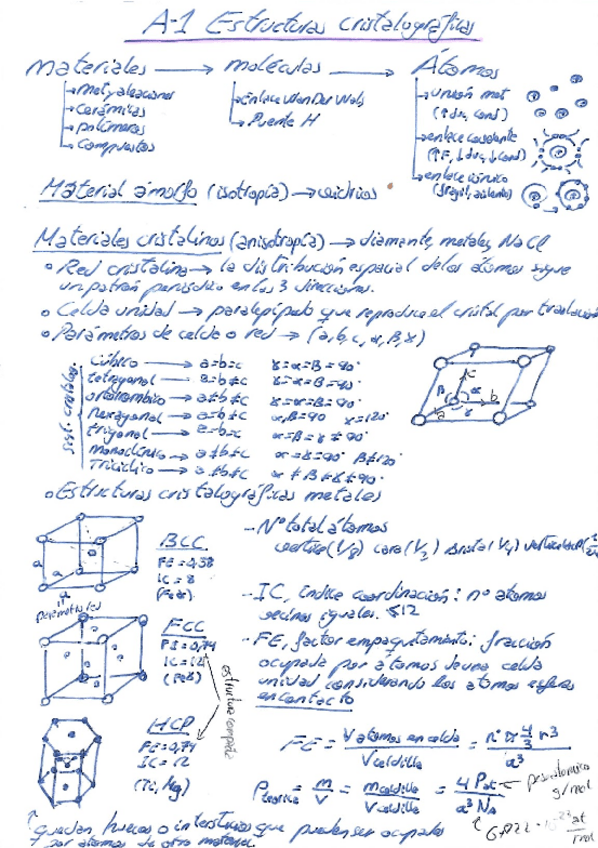 A-1 Estructuras cristalográficas
Materiales → moléculas → Átomos
→ met y aleaciones
→ cerámicas
→ polímeros
→ compuestos
→ enlace Van Der Wals
→ Puente H
→ unión met
(↑ du, cond)
→ enlace covalente
(↑F, ↓du, ↓cond)
→ enlace iónico
(frágil, aislante)
Material ámorfo (isotropía) → vidrios
Materiales cristalinos (anisotropía) → diamante, metales, NaCl
• Red cristalina → la distribución espacial de los átomos sigue
un patrón periódico en las 3 direcciones.
• Celda unidad → paralepípedo que reproduce el cristal por traslación
• Parámetros de celda o red → (a, b, c, α, β, γ)
Sist. cristalog.
cúbico → a=b=c γ=α=β=90°
tetragonal → a=b≠c γ=α=β=90°
ortorrombico → a≠b≠c γ=α=β=90°
hexagonal → a=b≠c α,β=90 γ=120°
trigonal → a=b=c α=β=γ≠90°
monoclínico → a≠b≠c α=γ=90° β≠120°
Triclíclico → a≠b≠c α≠β≠γ≠90°
a b c α β γ
• Estructuras cristalográficas metales
BCC
IC = 8
a a a
parámetros red
FCC
FE = 0,74
IC = 12
HCP
FE = 0,74
IC = 12
(Ti, Mg)
estructura compacta
- Nº total átomos
vertice (1/8) cara (1/2) arista (1/4)
- IC, índice coordinación: nº atomos
vecinos iguales. ≤12
- FE, factor empaquetamiento: fracción
ocupada por átomos de una celda
unidad considerando los atomos esferas
en contacto
FE = V atomos en celda / V celdilla = nº π 4/3 r³ / a³
ρ teorica = m/V = m celdilla / V celdilla = 4 Pat / a³ NA
peso atomico
g/mol
at/mol
quedan huecos o intersticios que pueden ser ocupados
por átomos de otro material